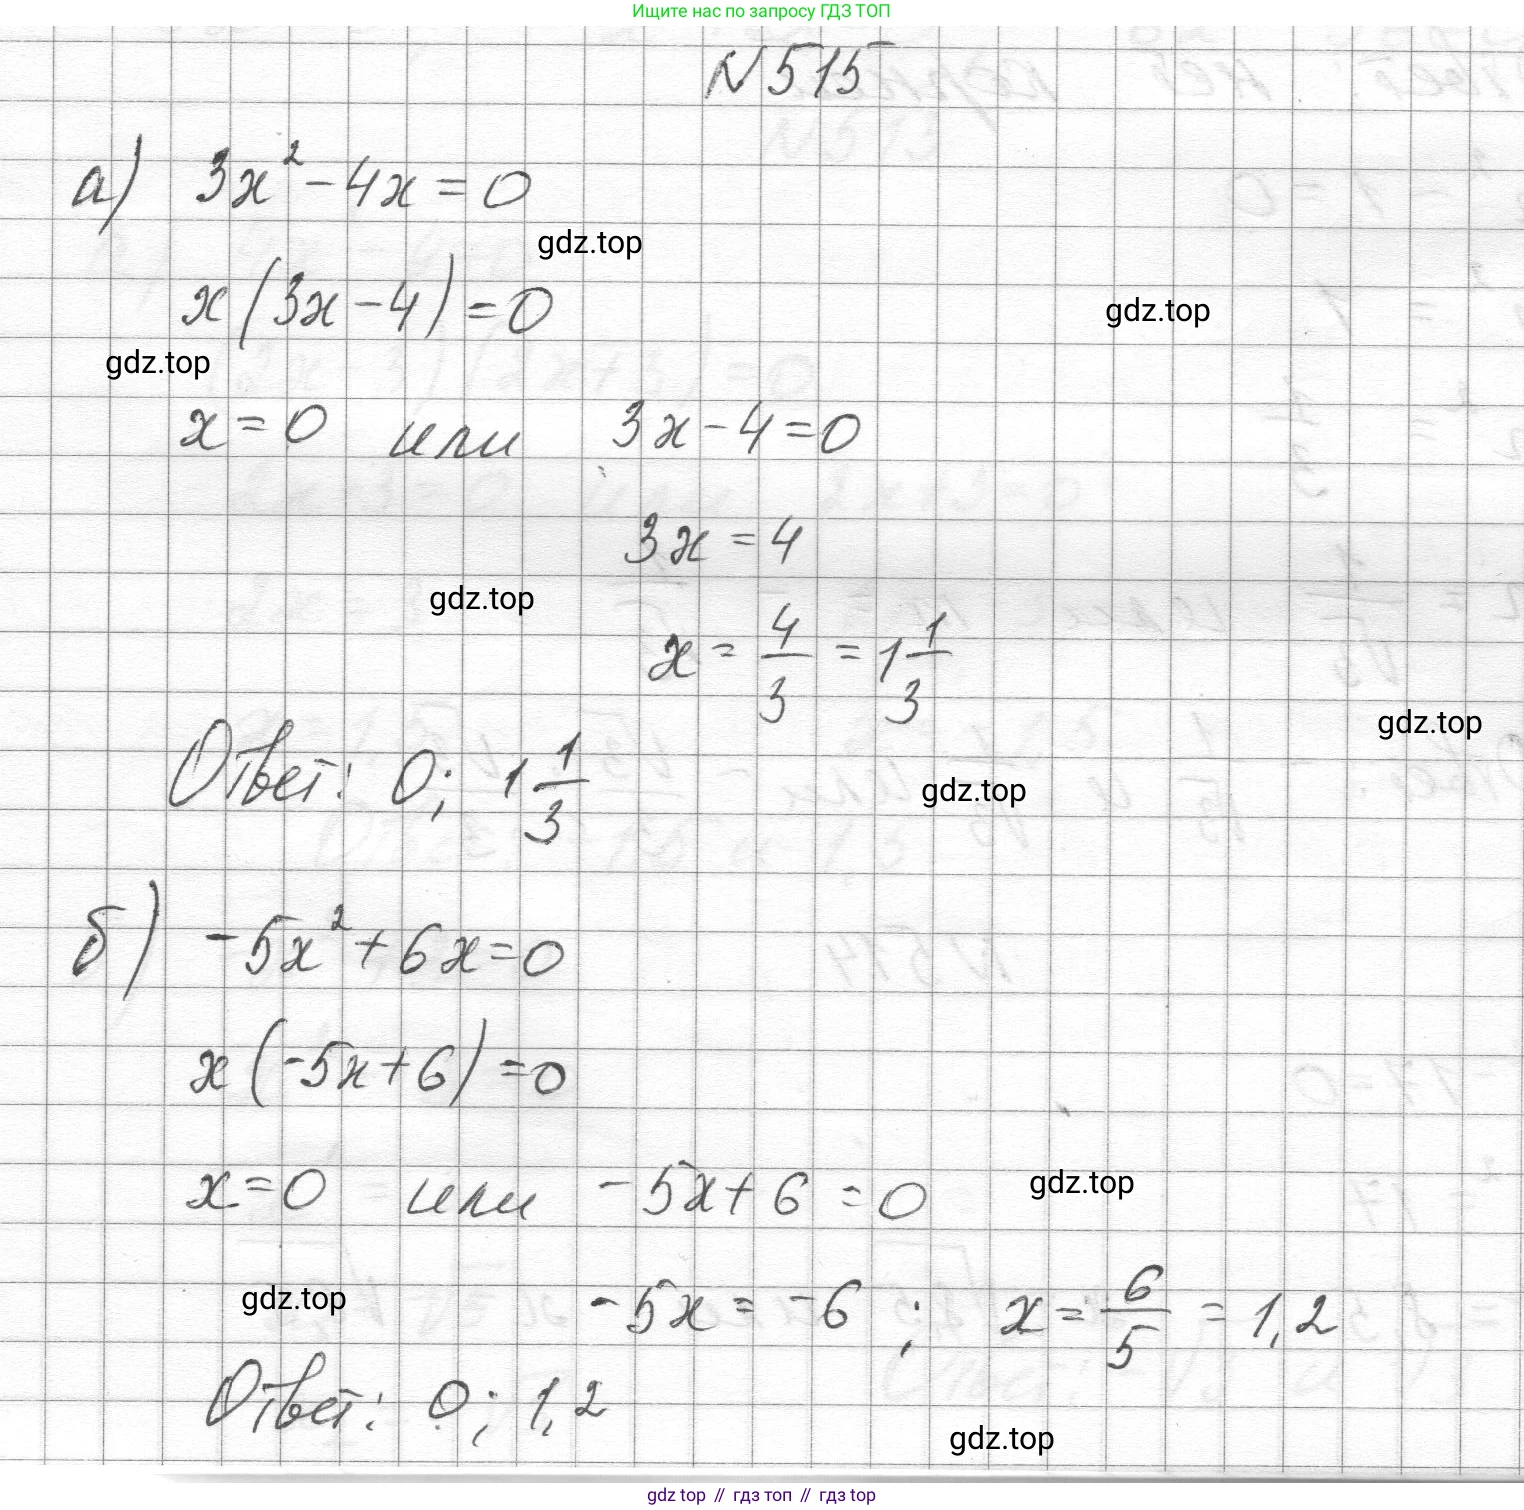 Ищите нас по запросу ГДЗ ТОП
N 515
а) 3x² - 4x = 0
gdz.top
x(3x - 4) = 0
gdz.top
gdz.top
x = 0 или 3x - 4 = 0
3x = 4
gdz.top
x = 4/3 = 1 1/3
gdz.top
Ответ: 0; 1 1/3
gdz.top
б) -5x² + 6x = 0
x(-5x + 6) = 0
x = 0 или -5x + 6 = 0
gdz.top
gdz.top
-5x = -6 ; x = 6/5 = 1,2
Ответ: 0; 1,2
gdz.top
gdz top // гдз топ // гдз top